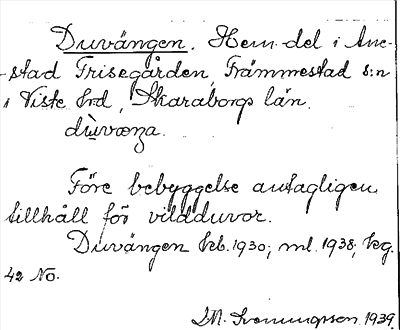 Duvängen. Hem.del i Ane-
stad Frisegården, Främmestad s:n
i Viste hrd, Skaraborgs län.
Före bebyggelse antagligen
tillhåll för vildduvor.
Duvängen kb. 1930; ml. 1938; kg.
42 No.
1939.